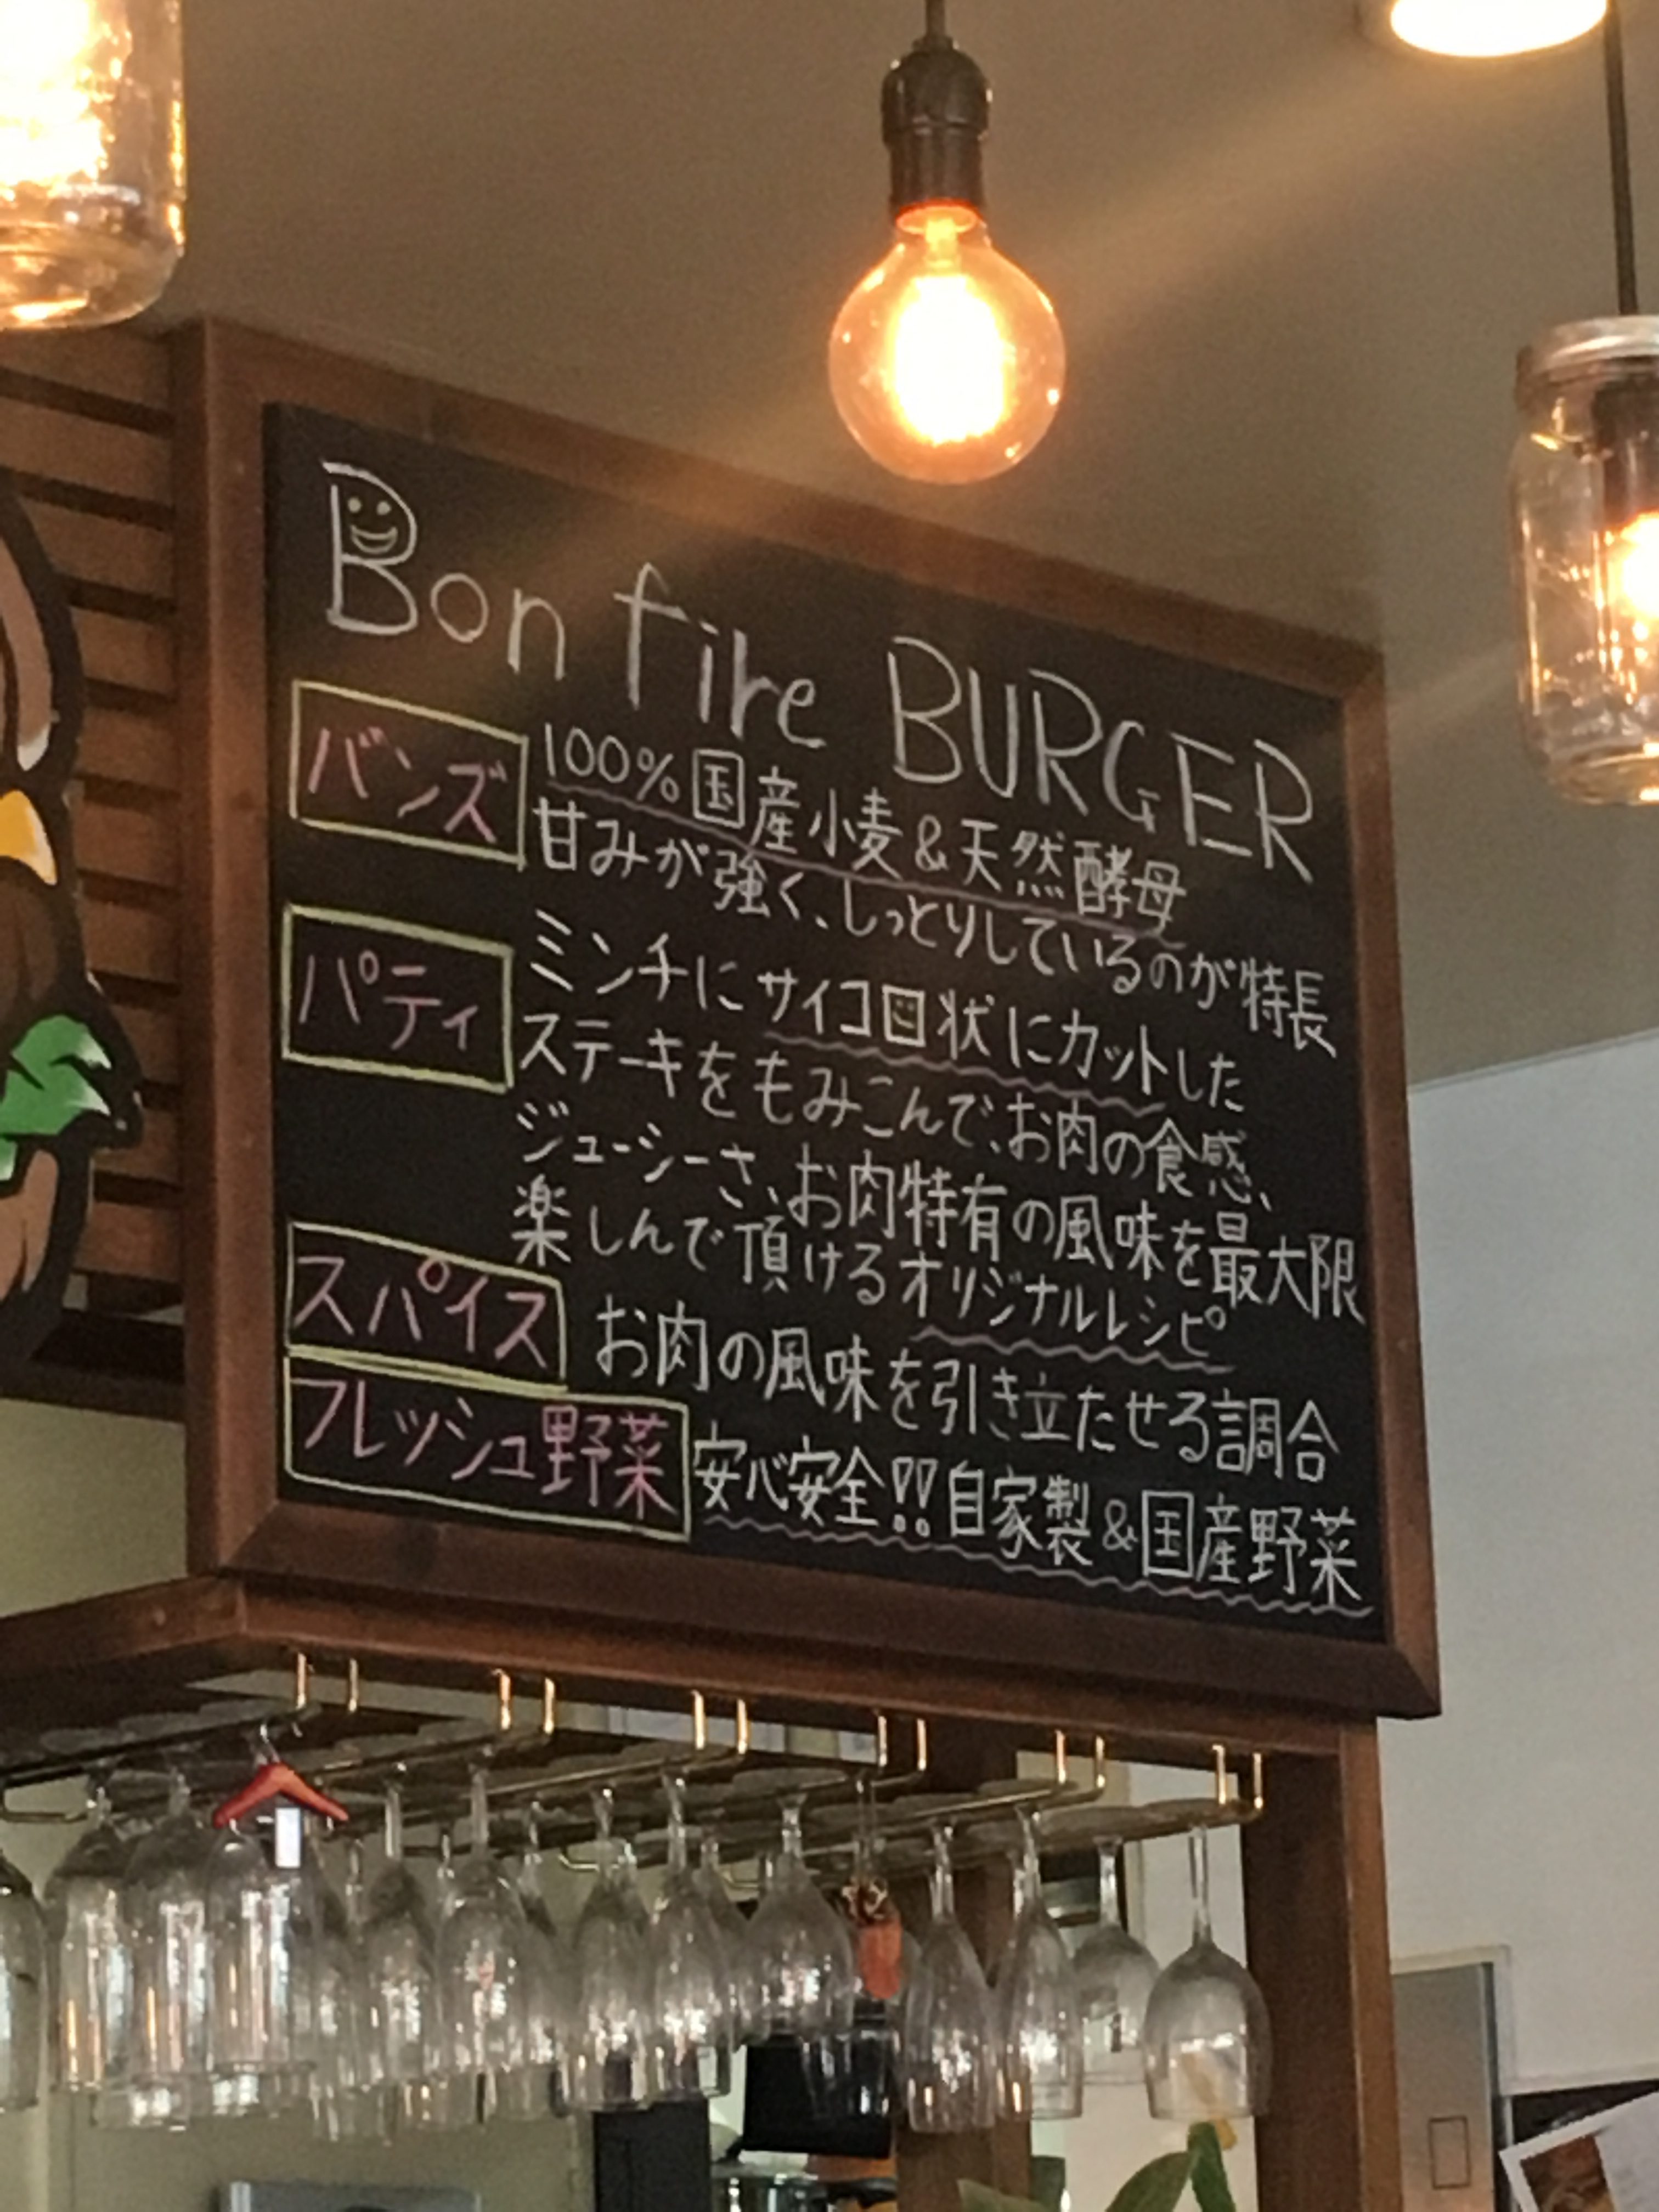 Bonfire BURGER
バンズ 100%国産小麦&天然酵母
甘みが強く、しっとりしているのが特長
パティ ミンチにサイコロ状にカットした
ステーキをもみこんで、お肉の食感、
ジューシーさ、お肉特有の風味を最大限
楽しんで頂けるオリジナルレシピ
スパイス お肉の風味を引き立たせる調合
フレッシュ野菜 安心安全!!自家製&国産野菜